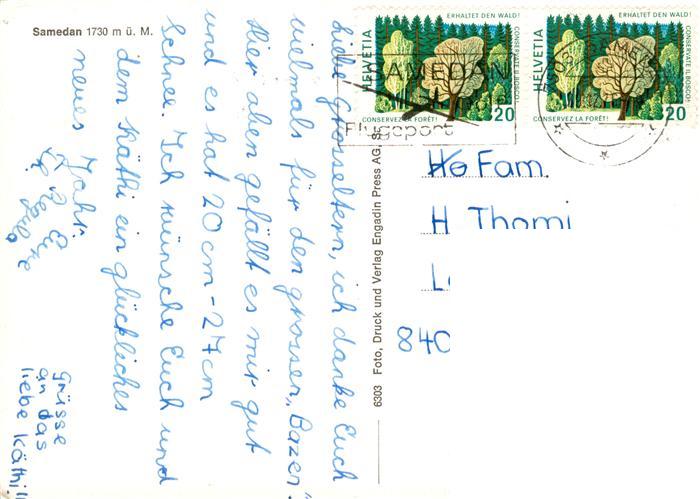 Samedan 1730 m ü. M.
Liebe Grosseltern, ich danke Euch
vielmals für den grossen „Bazen".
Hier oben gefällt es mir gut
und es hat 20 cm - 27 cm
Schnee. Ich wünsche Euch und
dem Käthi ein glückliches
neues Jahr.
Grüsse
an das
liebe Käthi!!
6303 Foto, Druck und Verlag Engadin Press AG, S
HELVETIA
ERHALTET DEN WALD!
CONSERVATE IL BOSCO!
CONSERVEZ LA FORÊT!
20
HELVETIA
ERHALTET DEN WALD!
CONSERVATE IL BOSCO!
CONSERVEZ LA FORÊT!
20
SAMEDAN
Flugsport
Fam.
H Thomi
L
840